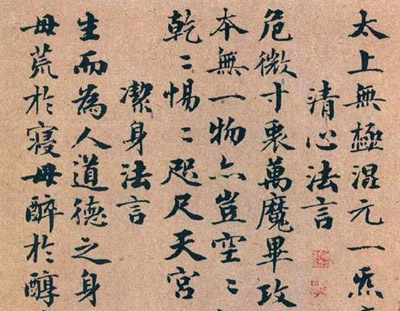 太上無極混元一炁
清心法言
危微寸衷萬魔畢攻
本無一物亦豈空〻
乾〻惕〻咫尺天宮
潔身法言
生而為人道德之身
毋荒於寢毋醉於醇